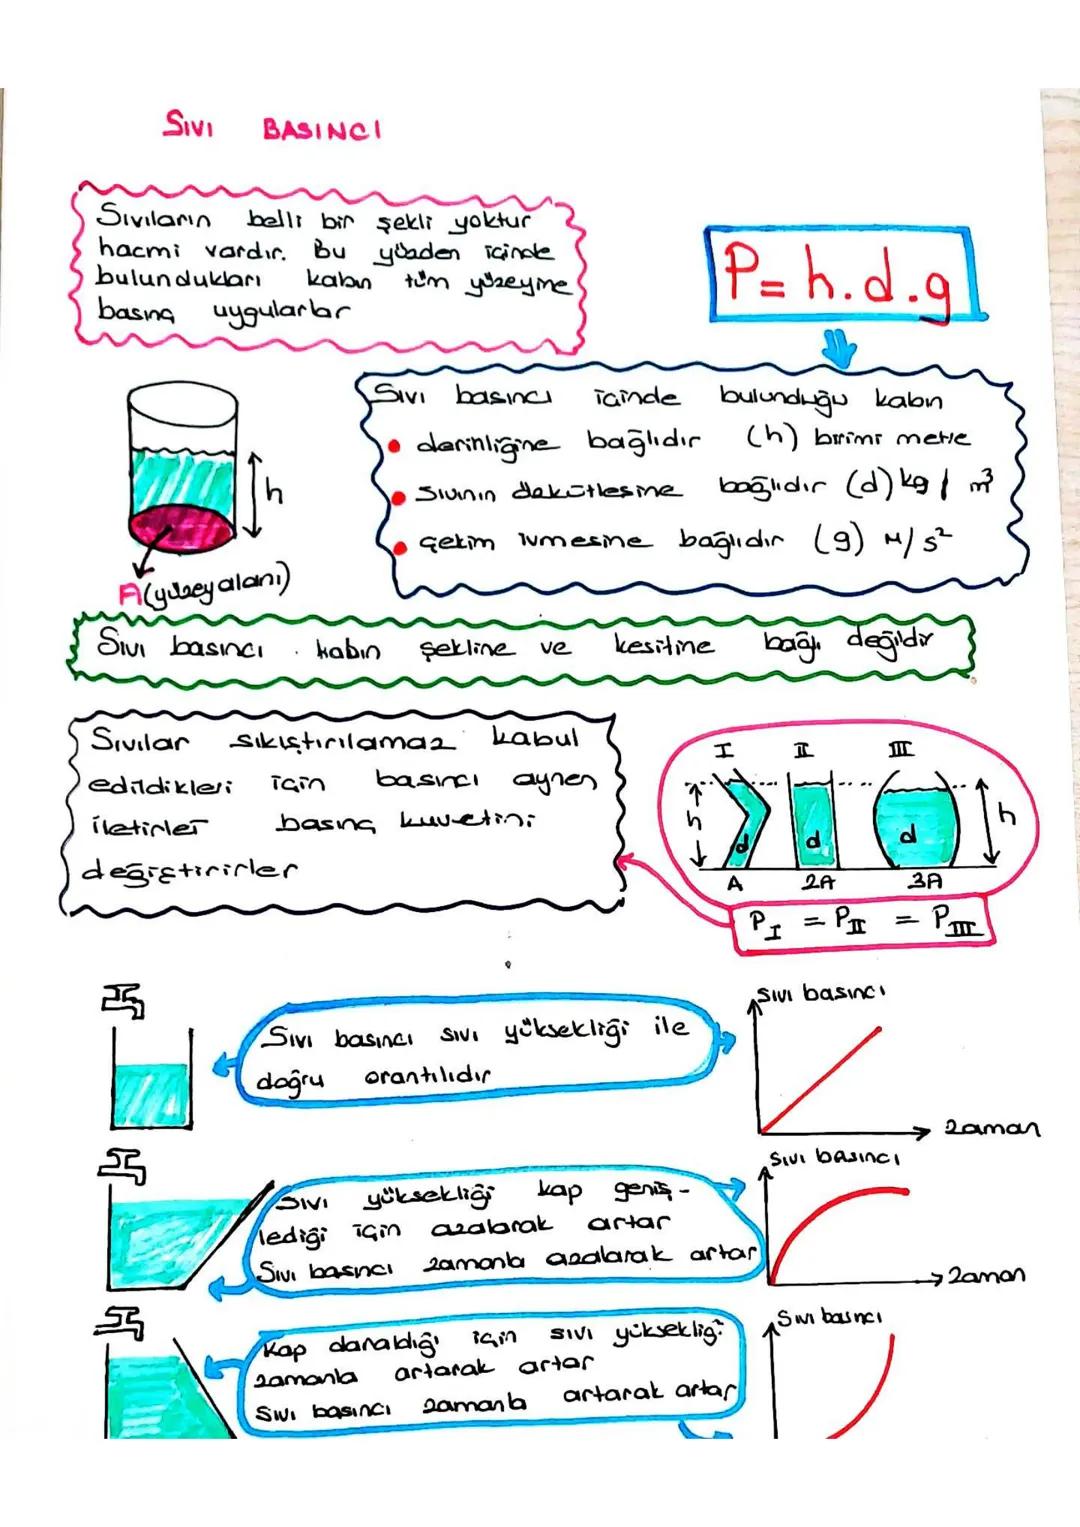 SIVI BASINCI
Sıvıların belli bir şekli yoktur
hacmi vardır. Bu yüzden içinde
bulundukları kabın tüm yüzeyine
basınç uygularlar
P = h.d.g
h
A(yüzey alanı)
Sıvı basıncı içinde bulunduğu kabın
• derinliğine bağlıdır (h) birimi metre
• sıvının özkütlesine bağlıdır (d) kg / m³
• çekim ivmesine bağlıdır (g) M/s²
Sıvı basıncı kabın şekline ve kesitine bağlı değildir
Sıvılar sıkıştırılamaz kabul
edildikleri için basıncı aynen
iletirler basınç kuvetini
değiştirirler
I II III
h d d d h
A 2A 3A
P_I = P_II = P_III
Sıvı basıncı sıvı yüksekliği ile
doğru orantılıdır
Sıvı basıncı
zaman
Sıvı yüksekliği kap geniş-
lediği için azalarak artar
Sıvı basıncı zamanla azalarak artar
Sıvı basıncı
zaman
Kap daraldığı için sıvı yüksekliği
zamanla artarak artar
Sıvı basıncı zamanla artarak artar
Sıvı basıncı